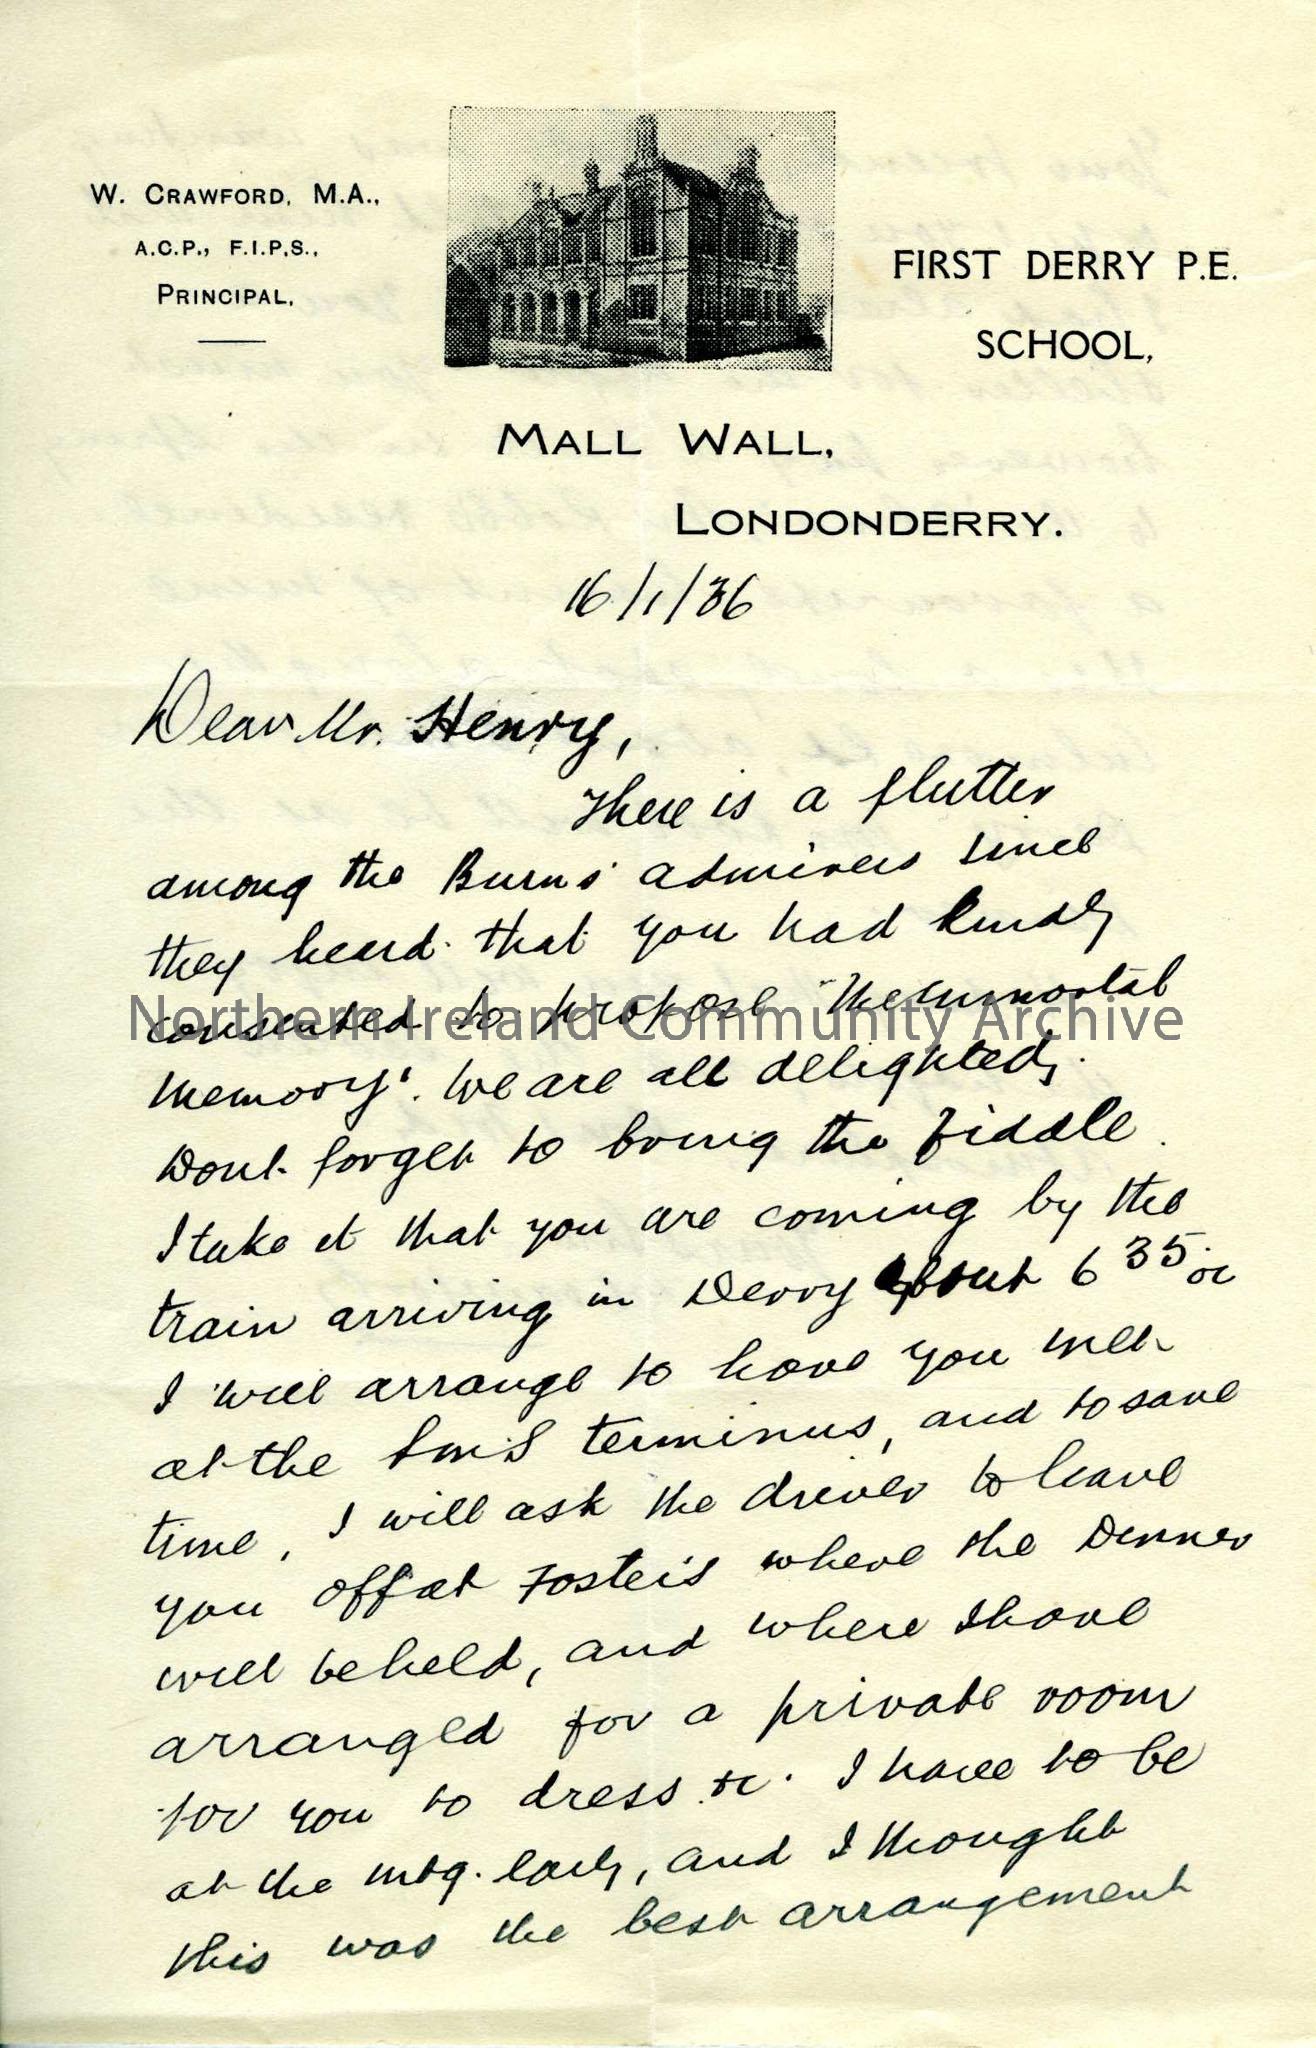 W. CRAWFORD, M.A.,
A.C.P., F.I.P.S.,
PRINCIPAL,
FIRST DERRY P.E.
SCHOOL,
MALL WALL,
LONDONDERRY.
16/1/36
Dear Mr. Henry,
There is a flutter
among the Burns' admirers since
they heard that you had kindly
consented to propose "The Immortal
Memory". We are all delighted.
Dont forget to bring the fiddle.
I take it that you are coming by the
train arriving in Derry about 6 35 &c
I will arrange to have you met
at the LMS terminus, and to save
time, I will ask the driver to leave
you off at Foster's where the Dinner
will be held, and where I have
arranged for a private room
for you to dress &c. I have to be
at the mtg. early, and I thought
this was the best arrangement
Northern Ireland Community Archive